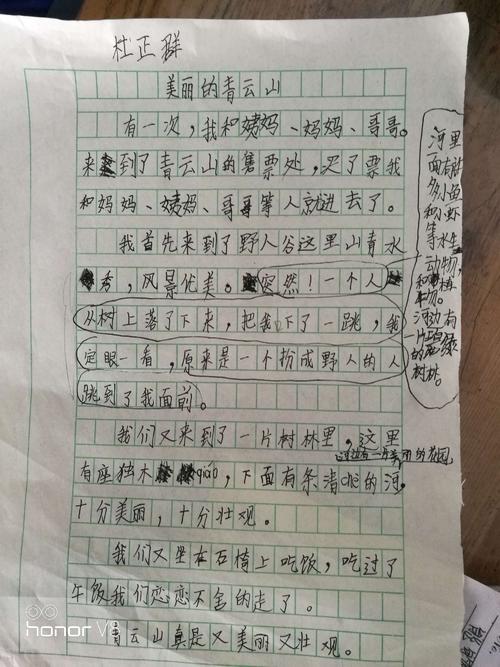 杜正群
美丽的青云山
有一次，我和姨妈、妈妈、哥哥。
来到了青云山的售票处，买了票我
和妈妈、姨妈、哥哥等人就进去了。
我首先来到了野人谷这里山青水
秀，风景优美。突然！一个人
从树上落了下来，把我下了一跳，我
定眼一看，原来是一个扮成野人的人
跳到了我面前。
我们又来到了一片树林里，这里
河边有一片美丽的花园，
有座独木qiáo，下面有条清chè的河。
十分美丽，十分壮观。
我们又坐在石椅上吃饭，吃过了
午饭我们恋恋不舍的走了。
青云山真是又美丽又壮观。
河里
面有许
多小鱼
和小虾
等水生
动物，
和植
物。
河边有
一片
的 绿
树林。
honor